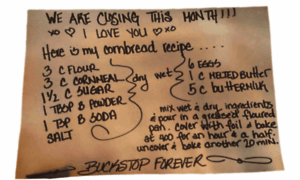 WE ARE CLOSING THIS MONTH!!!
xo ♡ I LOVE YOU ♡ xo
Here is my cornbread recipe ....
3 C FLOUR
3 C CORNMEAL
1½ C SUGAR
1 TBSP B POWDER
1 TSP B SODA
SALT
dry
wet
6 EGGS
1 C MELTED Butter
5 C buttermilk
mix wet & dry ingredients
& pour in a greased floured
pan. cover with foil & bake
at 400 for an hour & a half.
uncover & bake another 20 min.
BUCKSTOP FOREVER